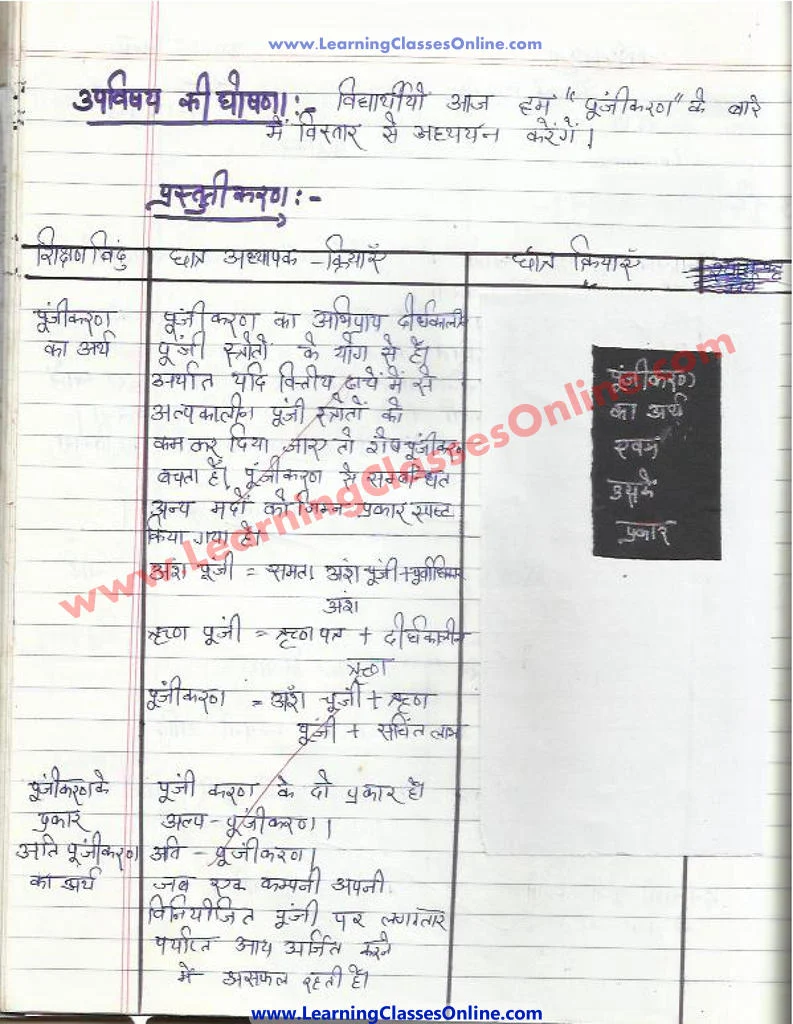 www.LearningClassesOnline.com
उपविषय की घोषणा :- विद्यार्थीयों आज हम "पूंजीकरण" के बारे
में विस्तार से अध्ययन करेंगें।
प्रस्तुतीकरण :-
शिक्षण बिंदु छात्र अध्यापक - क्रियाएँ छात्र क्रियाएँ
पूंजीकरण
का अर्थ
पूंजीकरण का अभिप्राय दीर्घकालीन
पूंजी स्त्रोतों के योग से हैं।
अर्थात यदि वित्तीय ढाचें में से
अल्पकालीन पूंजी स्त्रोतों को
कम कर दिया जाए तो शेष पूंजीकरण
बचता हैं। पूंजीकरण से सम्बन्धित
अन्य मदों को निम्न प्रकार स्पष्ट
किया गया है।
अंश पूंजी = समता अंश पूंजी + पूर्वाधिकार
अंश
ऋण पूंजी = ऋण पत्र + दीर्घकालीन
ऋण
पूंजीकरण = अंश पूंजी + ऋण
पूंजी + संचित लाभ
पूंजीकरण
का अर्थ
एवम
उसके
प्रकार
पूंजीकरण के
प्रकार
पूंजी करण के दो प्रकार हैं।
अल्प - पूंजीकरण।
अति पूंजीकरण
का अर्थ
अति - पूंजीकरण।
जब एक कम्पनी अपनी
विनियोजित पूंजी पर लगातार
पर्याप्त आय अर्जित करने
में असफल रहती हैं।
www.LearningClassesOnline.com
www.LearningClassesOnline.com